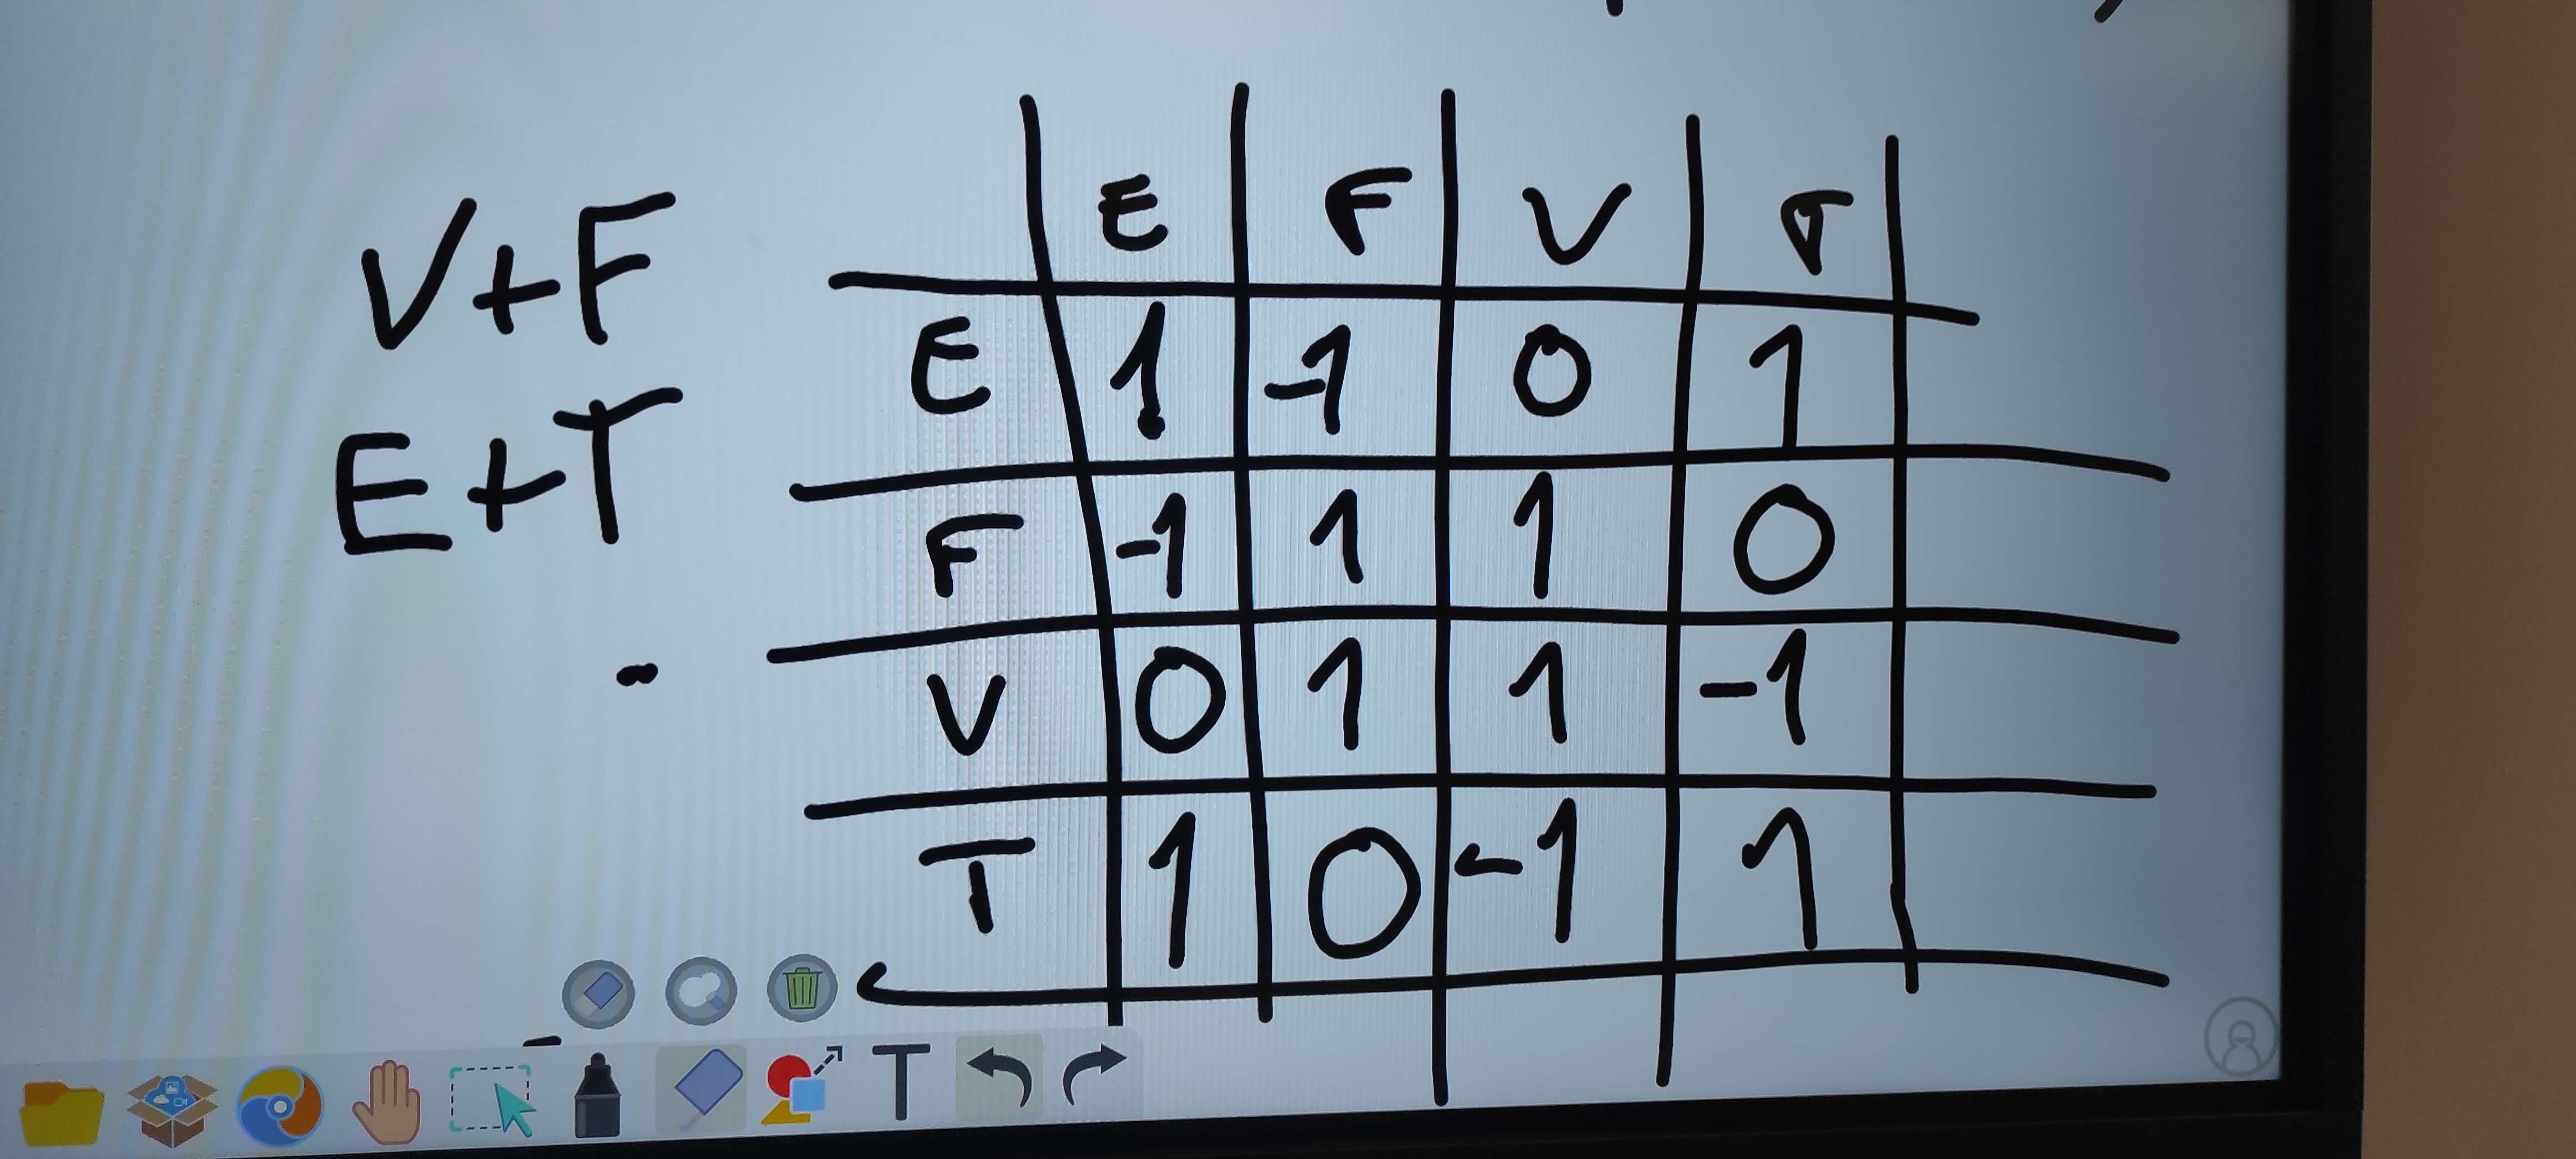 V+F
E+T
E F V T
E 1 -1 0 1
F -1 1 1 0
V 0 1 1 -1
T 1 0 -1 1
T